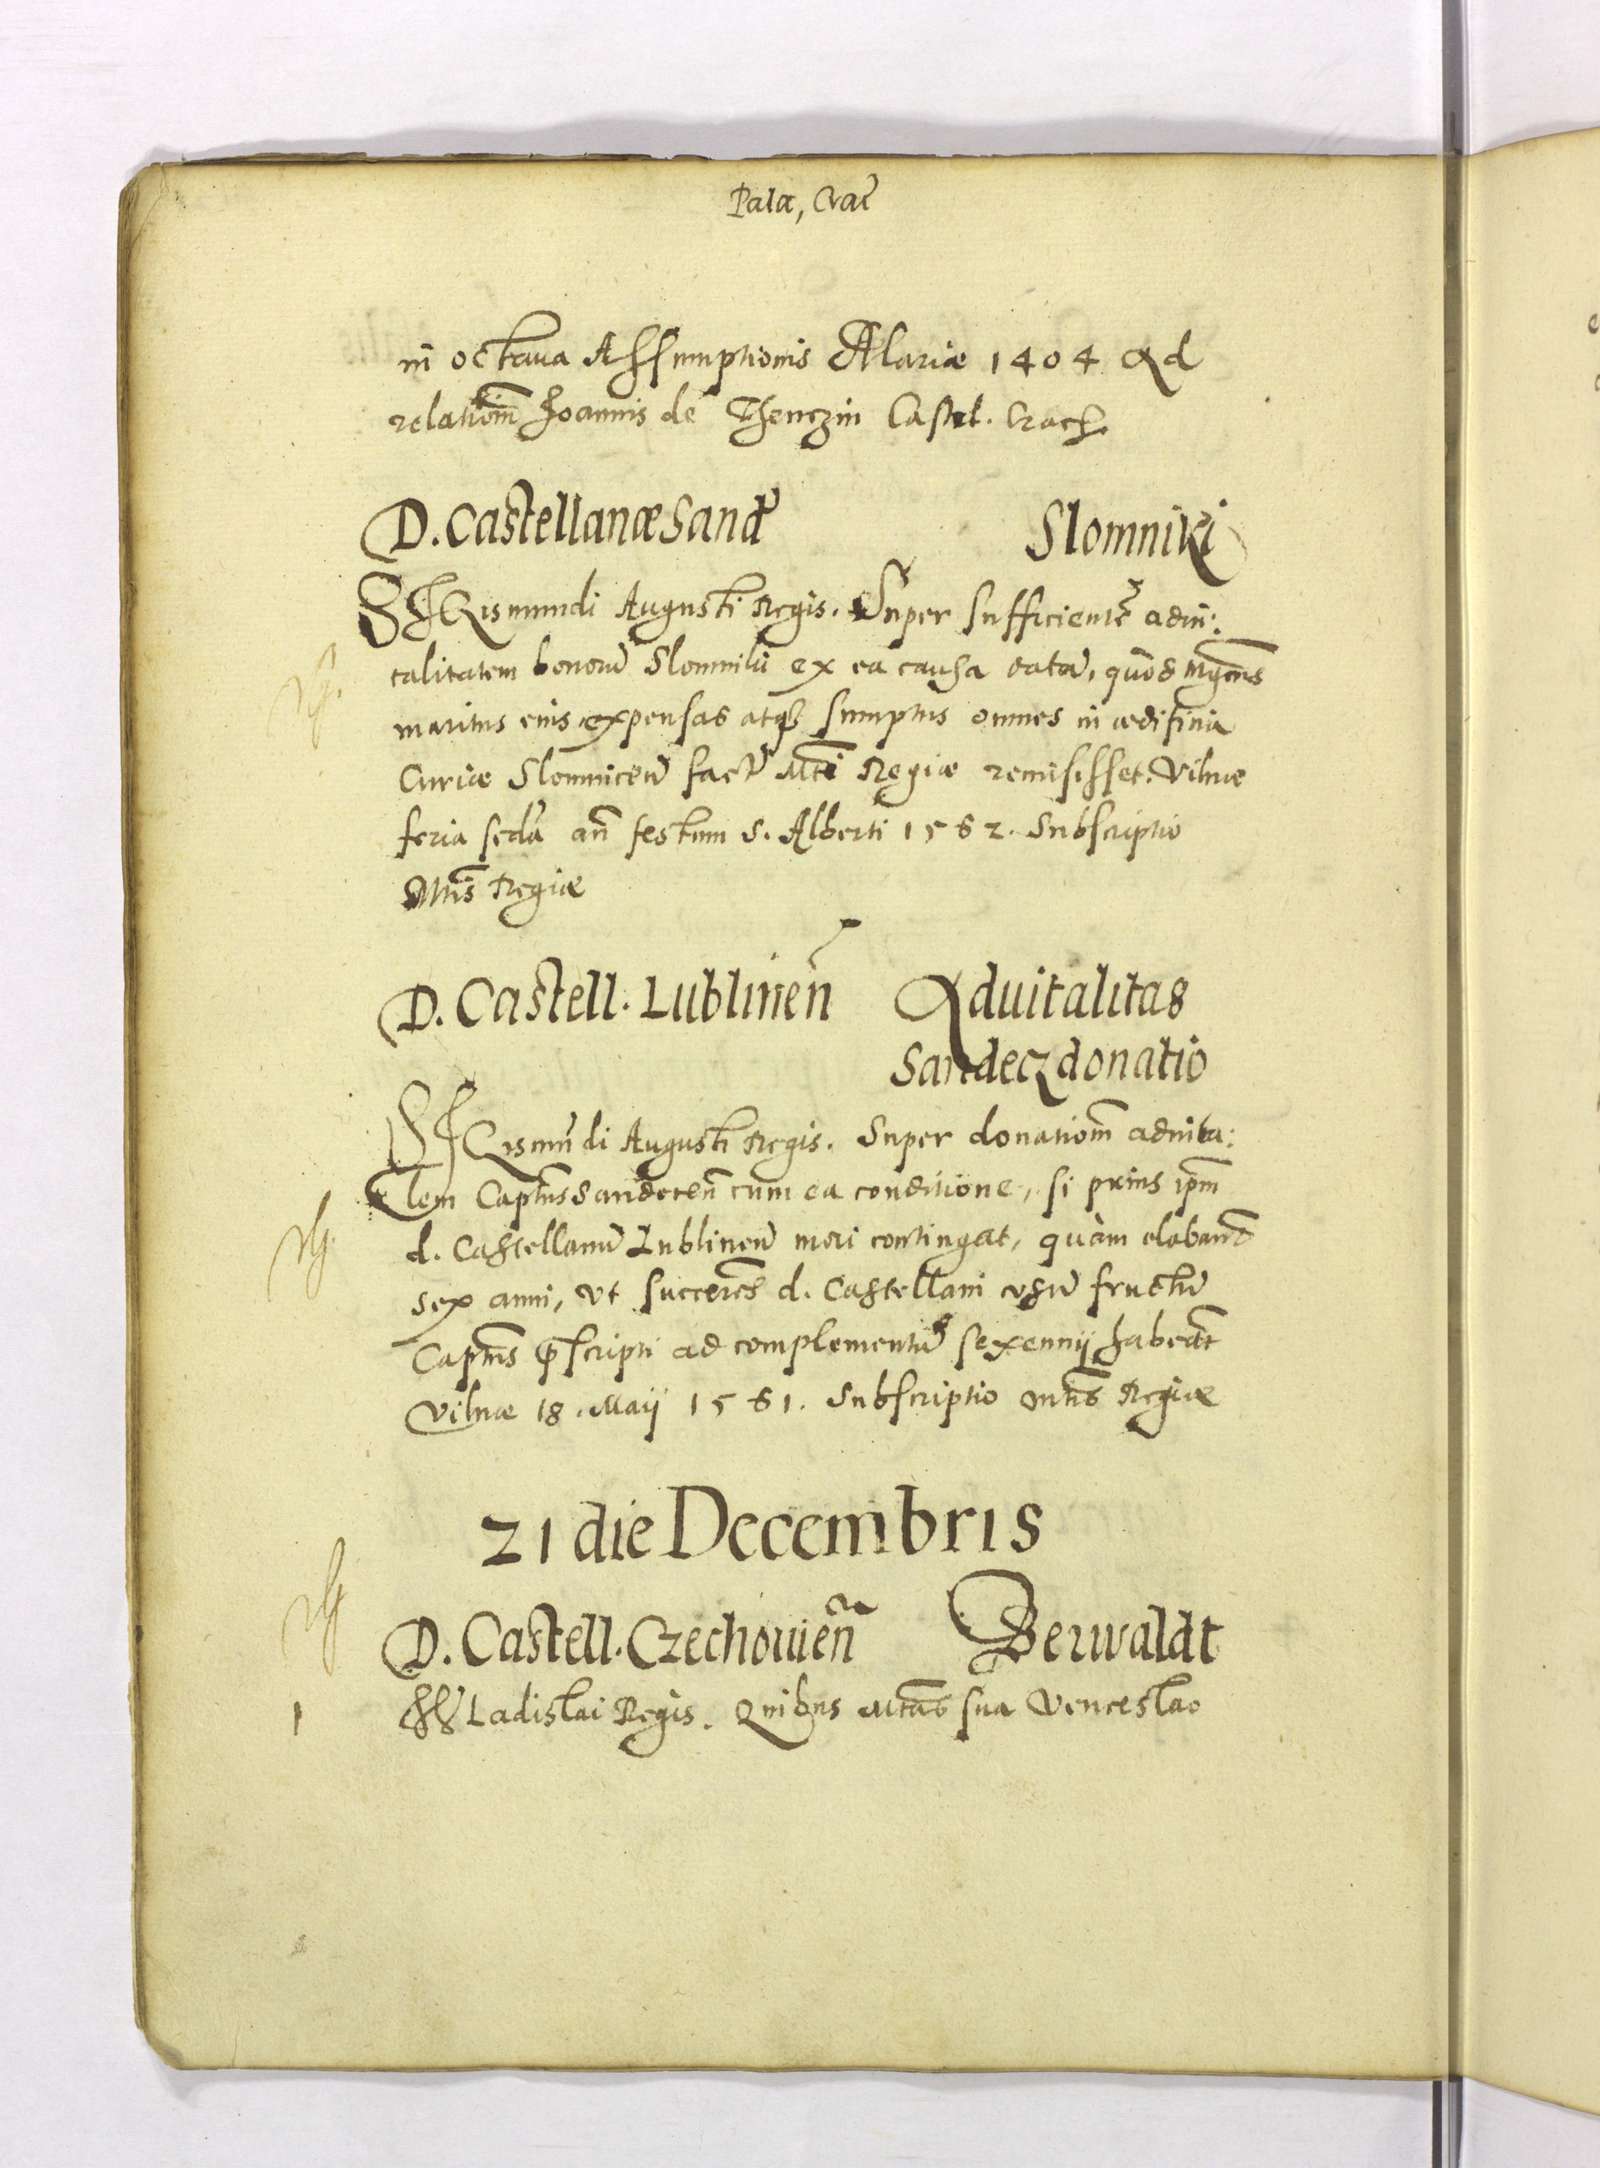 Palat, Crac̃
in octava Assumptionis Mariæ 1404 Ad
relationẽ Joannis de Thenczin Castel. Crach.
D. Castellanæ Sand̃ Slomniki
SIGismundi Augusti Regis. Super sufficientẽ advi:
talitatem bonorũ Slomniki ex ea causa datã, quod Mgcus
maritus eius expensas atq3 sumptus omnes in ædificia
Curiæ Slomniceñ factũ Mti Regiæ remisisset. Vilnæ
feria secda añ festum S. Alberti 1562. Subscriptio
Mtis Regiæ
D. Castell. Lublineñ Aduitalitas
Sandecz donatio
SIGismũdi Augusti Regis. Super donationẽ aduita:
lem Captus Sandeceñ cum ea conditione, si prius ipm
d. Castellanũ Lublineñ mori contingat, quàm elabant
sex anni, vt succeres d. Castellani vsũ fructũ
Captus pscripti ad complementũ sexennij habeãt
Vilnæ 18. Maij 1561. Subscriptio Mtis Regiæ
21 die Decembris
D. Castell. Czechouieñ Berwaldt
WLadislai Regis. Quibus Mtas sua Venceslao